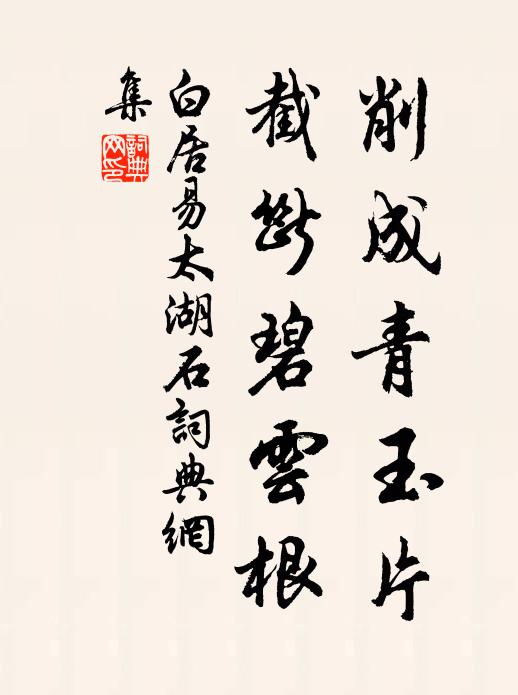 削成青玉片
截斷碧雲根
白居易太湖石詞典網
集
詞典
网印